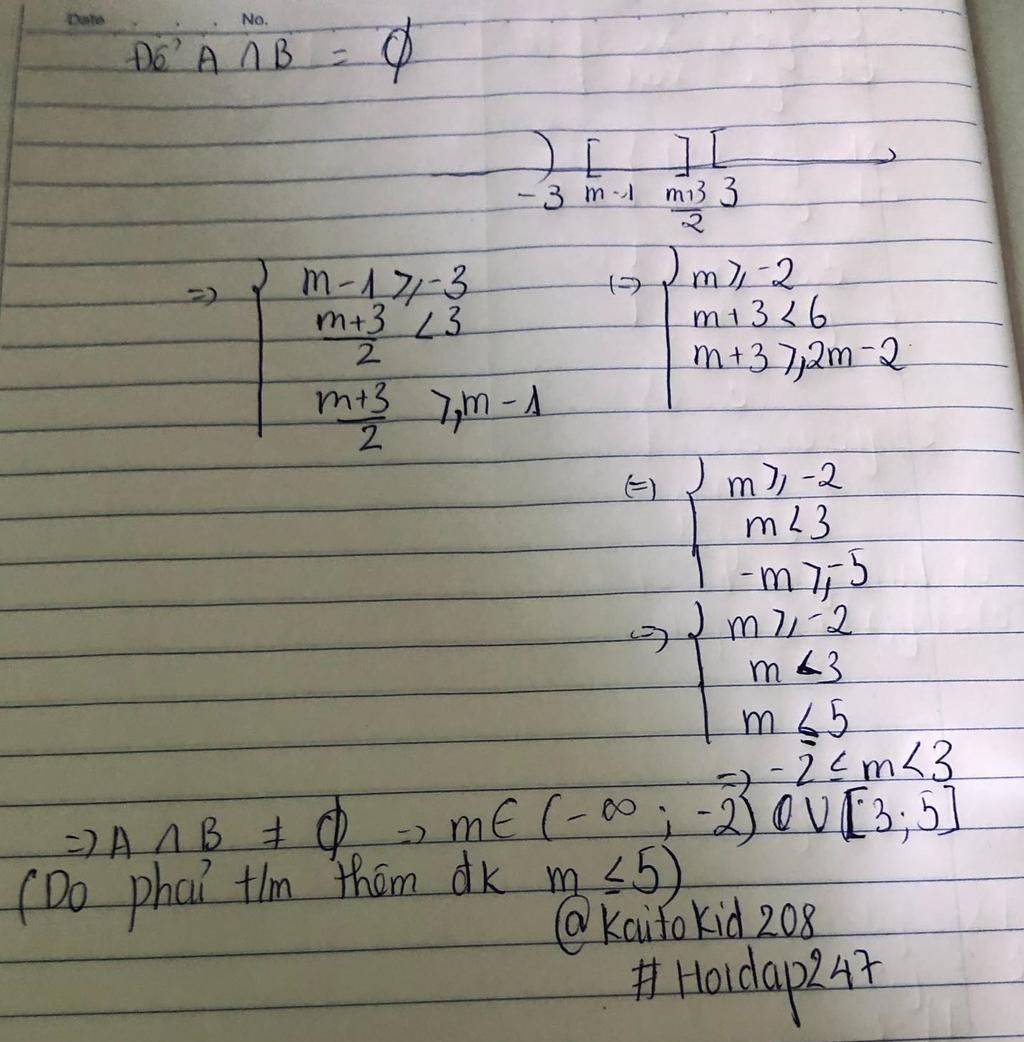 Date No.
Để A ∩ B = ∅
) [ ] [
-3 m-1 m+3/2 3
=> { m-1 ⩾ -3 (=> { m ⩾ -2
m+3/2 < 3 m+3 < 6
m+3/2 ⩾ m-1 m+3 ⩾ 2m-2
(=) { m ⩾ -2
m < 3
-m ⩾ -5
<=> { m ⩾ -2
m < 3
m ≤ 5
=> -2 ≤ m < 3
=> A ∩ B ≠ ∅ => m ∈ (-∞; -2) ∪ [3; 5]
(Do phải t/m thêm đk m ≤ 5)
@Kaitokid208
# Hoidap247